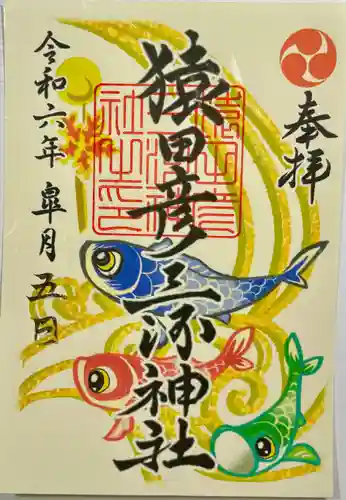 奉拝
猿田彦三河神社
令和六年 皐月 五日